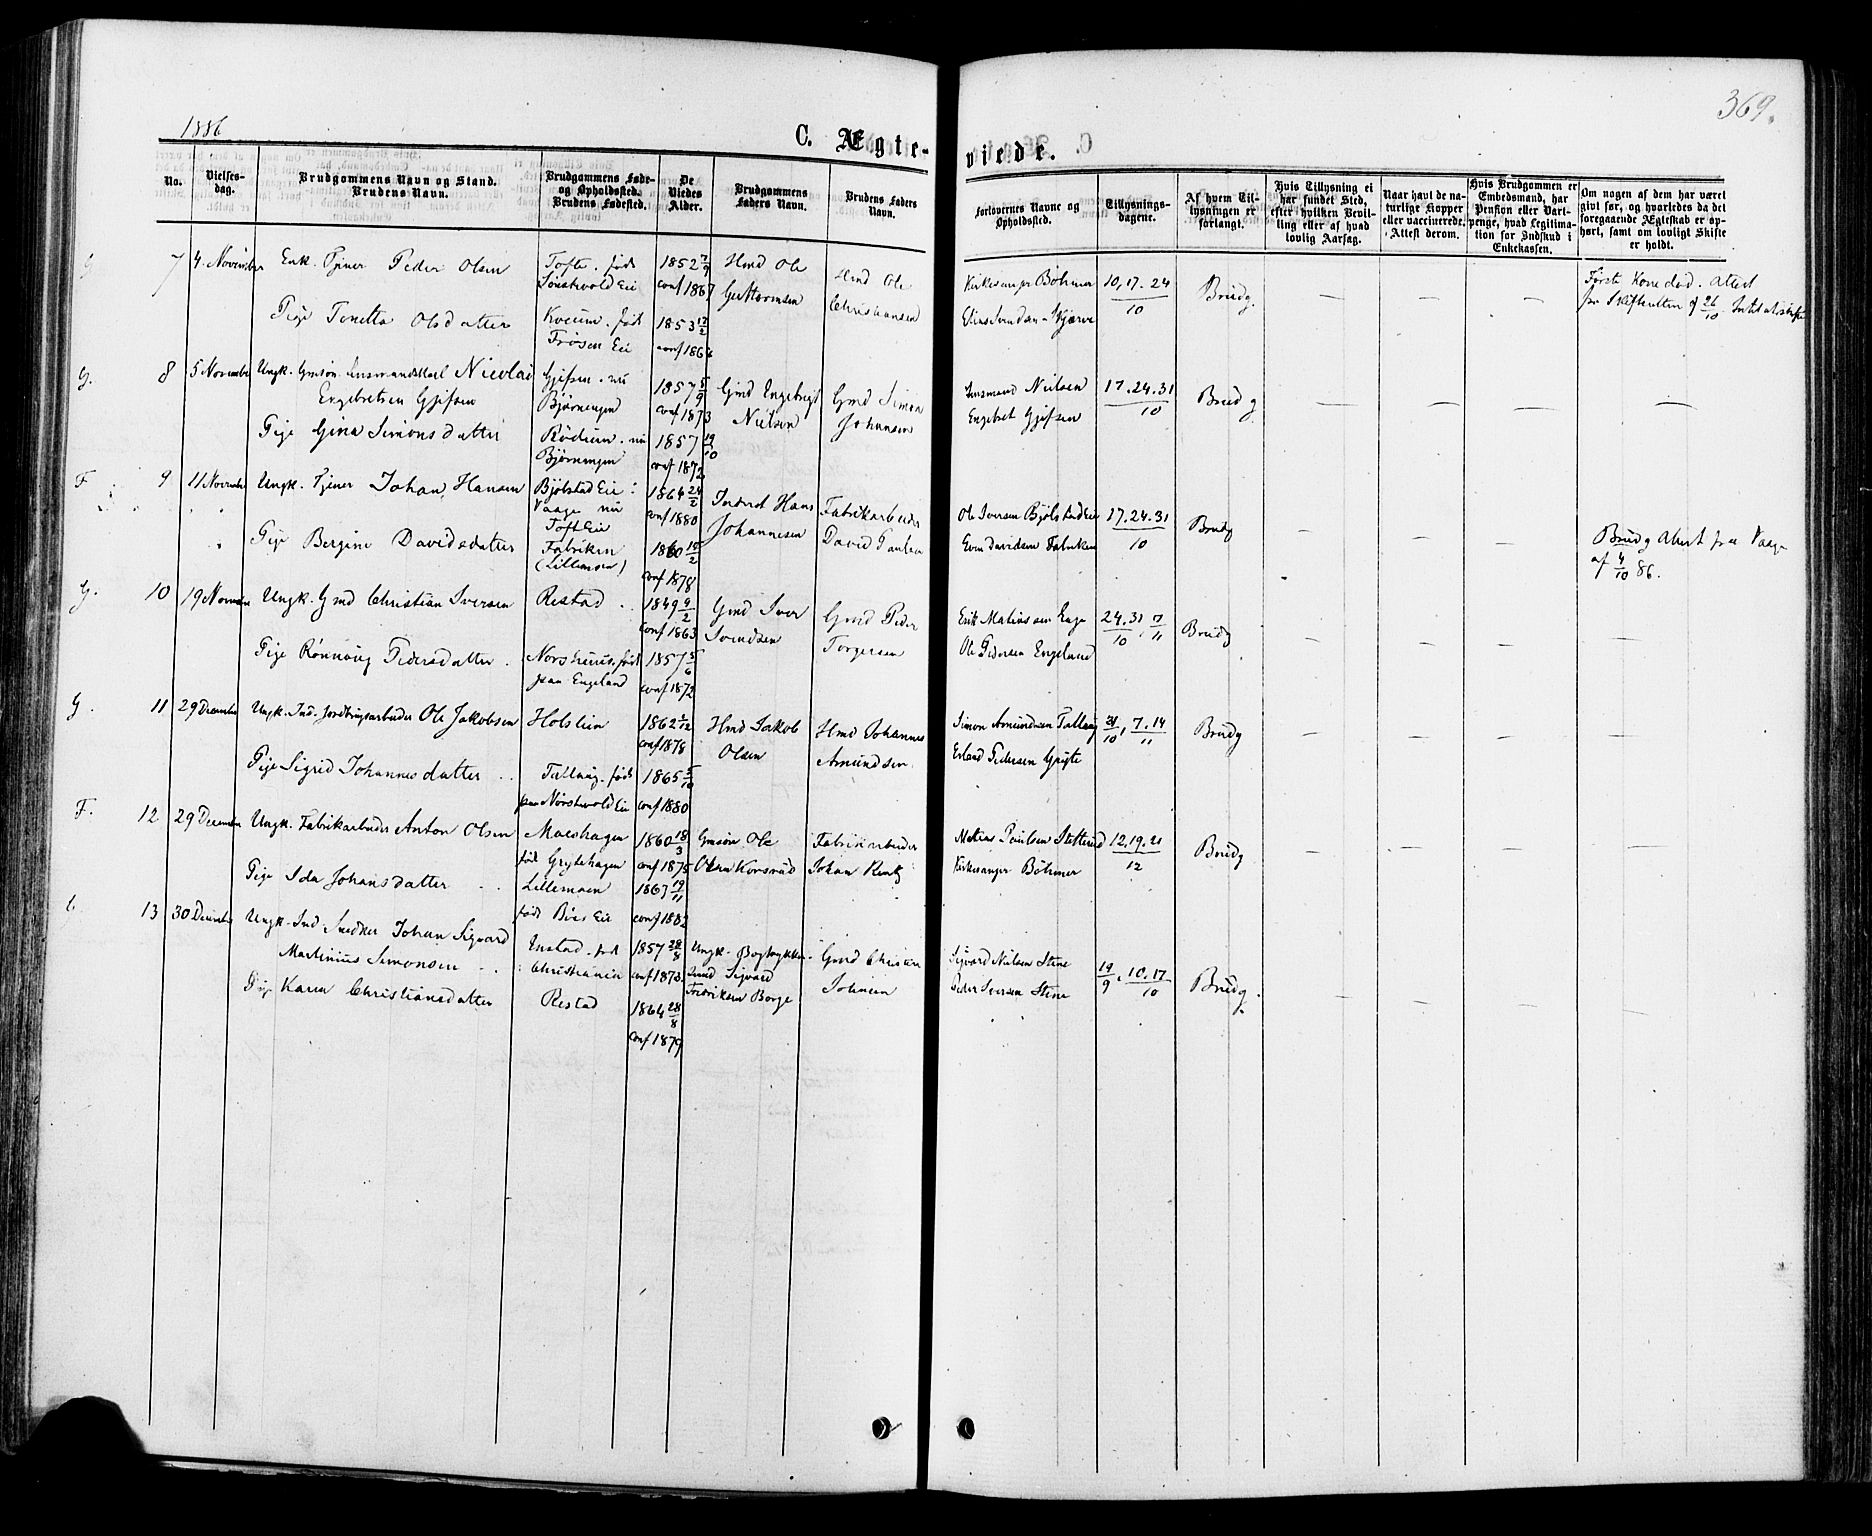 1886
369.
C. Ægte-
viede.
No.
Vielses-
dag.
Brudgommens Navn og Stand.
Brudens Navn.
Brudgommens Føde-
og Opholdssted.
Brudens Fødested.
De
Viedes
Alder.
Brudgommens
Faders Navn.
Brudens Faders
Navn.
Forlovernes Navne og
Opholdssted.
Tillysnings-
dagene.
Af hvem Til-
lysningen er
forlangt.
Hvis Tillysning ei
har fundet Sted,
efter hvilken Bevil-
ling eller af hvad
lovlig Aarsag.
Naar havt de na-
turlige Kopper
eller vaccinerede.
Attest derom.
Hvis Brudgommen er
Embedsmand, har
Pension eller Vart-
penge, hvad Legitima-
tion for Indskud i
Enkekassen.
Om nogen af dem har været
givt før, og hvorledes da det
foregaaende Ægteskab er op-
hørt, samt om lovligt Skifte
er holdt.
G 7 4 November Enk. Tjener Peder Olsen
Tofte. født
Sønstevold Eie
1852 7/9
conf 1867
Hmd Ole
Guttormsen
Hmd Ole
Christiansen
Pige Tonetta Olsdatter
født
Frøsen Eie
1853 17/2
Kirkesanger Bøhmer
10, 17. 24
10
Brudg.
Første Kone død. Attest
fra Skifteretten af 26/10
G. 8 5 November Ungk. Gmsøn. Nicolai
Engebretsen Gjifsen
Gjifsen. nu
Bjørningen
1857 5/9
conf 1873
Gmd Engebrigt
Nielsen
Gmd Simon
Johansen
Pige Gina Simonsdatter
Rødium. nu
Bjørningen
1857 19/10
conf 1872
Nielsen
Engebret Gjifsen
17. 24. 31
10
Brudg
F. 9 11 November Ungk. Tjener Johan Hansen
Bjølstad Eie:
Vaage nu
Toft Eie
1864 24/2
conf 1880
Inderst Hans
Johannesen
Fabrikarbeider
David Paulsen
Pige Bergine Davidsdatter
Fabriken
(Lillemoen)
1860
conf 1878
Ole Iversen Bjølstad Eie
Even Davidsen Fabriken
17. 24. 31
10
Brudg
Brudg Attest fra Vaage
af 4/10 86.
G. 10 19 November Ungk. Gmd Christian Iversen
Restad
1849 9/2
conf 1863
Gmd Iver
Svendsen
Gmd Peder
Torgersen
Pige Rønnoug Pedersdatter.
Norshuus. født
paa Engeland
1857 5/6
conf 1872
Erik Mathisen Enge
Ole Pedersen Engeland
24. 31/10, 7/11
Brudg
G. 11 29 December Ungk. Ind. Jordbrugsarbeider Ole Jakobsen
Holstein
1862
conf 1878
Hmd Jakob
Olsen
Hmd Johannes
Amundsen
Pige Sigrid Johannesdatter
Tallaug. født
paa Nørstevold Eie
1865 5/10
conf 1880
Simon Amundsen Tallaug
Erland Pedersen Grytte
31/10, 7. 14/11
Brudg
F. 12 29 December Ungk. Fabrikarbeider Anton Olsen
Moeshagen
født Grytehagen
1860 18/3
conf 1875
Gmsøn Ole
Olsen Korsrud
Fabrikarbeider
Johan Rentz
Pige Ida Johansdatter
Lillemoen
født Bøes Eie
1867 19/11
conf 1882
Mathias Paulsen Stetterud
Kirkesanger Bøhmer
12, 19. 21
12
Brudg
13 30 December Ungk. Ind. Snedker Johan Sigvard
Martinius Simonsen
Enstad. født
i Christiania
1857 28/8
conf 1873.
Ungk. Bogtrykker-
Svend Sigvard
Fredriksen Borge
Gmd Christen
Johnsen
Pige Karen Christiansdatter
Restad
1864 28/8
conf 1879
Sigvard Nielsen Stene
Peder Iversen Stene
19/9. 10. 17/10
Brudg.